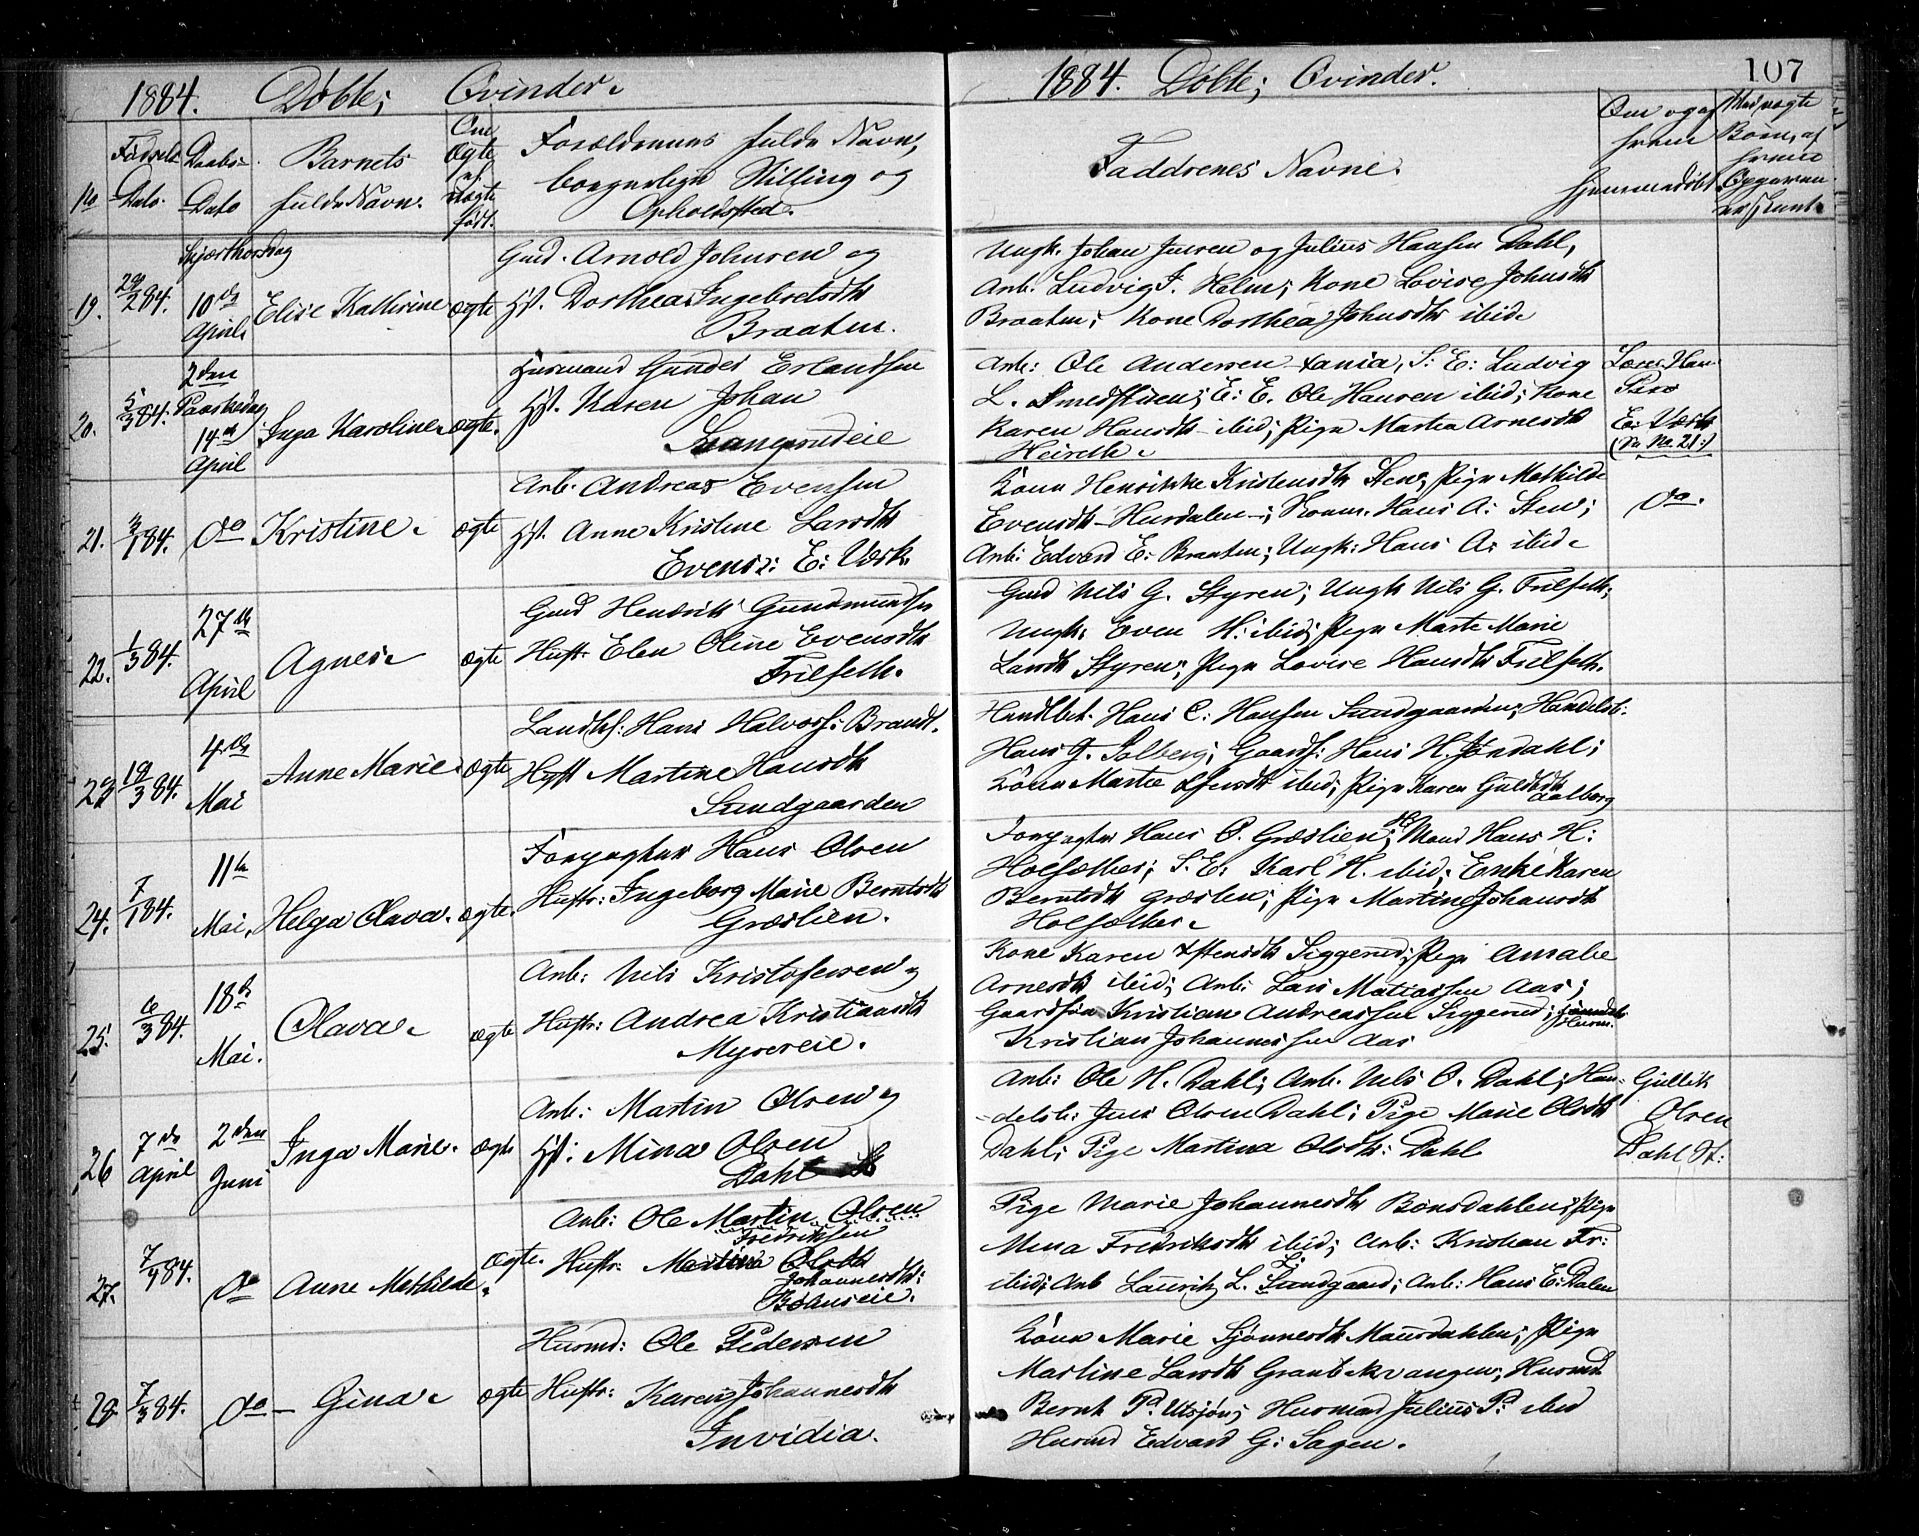 1884. Døbte; Qvinder.
No
Fødsels Dato.
Daabs- Dato
Barnets fulde Navn.
Om Ægte ell. uægte født.
Forældrenes fulde Navn, borgerlige Stilling og Opholdssted.
19.
29/2 84.
Skjærthorsdag
10de
April
Elise Kathrine
ægte
Gmd. Arnold Johnsen og
Hst. Dorthea Ingebretsdtr
Braaten.
20.
5/3 84.
2den
Paaskedag
14de
April
Inga Karoline
ægte.
Husmand Gunder Erlandsen
Hst. Karen Johan
21.
84.
do
Kristine.
ægte
Arb. Andreas Evensen
Hst. Anne Kristine Larsdtr
E: Værk.
22.
1/3 84.
27de
April
Agnes.
ægte
Gmd Hendrik Gundmundsen
Hustr. Elen Oline Evensdtr
Frilseth.
23
19/3 84.
4de
Mai
Anne Marie.
ægte
Landhl: Hans Halvors: Brandt.
Hust Martine Hansdtr
Sundgaarden
24.
7/1 84.
11te
Mai.
Helga Olava.
ægte.
Forpagter Hans Olsen
Hustr: Ingeborg Marie Berntsdtr
Græslien.
25.
6/3 84.
18de
Mai.
Olava.
ægte
Arb: Nils Kristofersen og
Hustr: Andrea Kristiansdtr
Myrereie.
26
7de
April
2den
Juni
Inga Marie.
ægte
Arb: Martin Olsen og
Hst: Mina Olsen
Dahl
27.
7/4 84.
do
Anne Mathilde.
ægte.
Arb: Ole Martin Olsen
Fredriksen
Hustr. Martine Olsdtr
Johannesdtr:
28
7/3 84.
do
Gina.
ægte
Husmd: Ole Pedersen
Hustr: Karen Johannesdtr
Invidia.
1884. Døbte; Qvinder.
107
Faddrenes Navne.
Om og af hvem hjemmedøbt
Ved uægte Børn, af hvem
Ungk. Johan Jensen og Julius Hansen Dahl,
Arb. Ludvig J. Holm; Kone Lovise Johnsdtr
Braaten; Kone Dorthea Johnsdtr ibid.
Arb: Ole Andersen S: E: Ludvig
L. Smedstuen; E: E. Ole Hansen ibid; Kone
Karen Hansdtr ibid; Pige Martea Arnesdtr
Lærer
E: Værk
(See No 21:)
Kone Henrikke Kristensdtr Steen; Pige Mathilde
Evensdtr Hurdalen; Hans A: Steen;
Arb: Edvard E: Braaten; Ungk: Hans A: ibid.
do.
Gmd Nils G. Styren; Ungk Nils G. Frilseth;
Ungk. Even H. ibid; Pige Marte Marie
Larsdt Styren; Pige Lovise Hansdtr Frilseth.
Handlbet. Hans C: Hansen Sundgaarden; Handelsb:
Hans G. Solberg; Gaards: Hans H. Jøndahl;
Kone Marte ibid; Pige Karen Guldbdtr
Aalborg
Forpagter Hans O. Græslien; Hans H:
S. E: Karl H. ibid; Enke Karen
Berntsdt Græslien; Pige Martine Johansdt
Kone Karen Siggerud; Pige Amalie
Arnesdtr ibid; Arb: Lars Matiassen Aas;
Gaardsøn Kristian Andreassen Siggerud;
Kristian Johannessen Aas
Arb: Ole H. Dahl; Arb. Nils O. Dahl; Han-
-delsb: Jens Olsen Dahl; Pige Marie Olsdtr
Dahl; Pige Martina Olsdtr: Dahl
Gullik
Olsen
Dahl St:
Pige Marie Johannesdtr Bønsdahlen; Pige
Mina Fredriksdtr ibid; Arb: Kristian Fr:
ibid; Arb Lauritz L. Sundgaard; Arb: Hans E: Dalen
Kone Marie Mansdahlen; Pige
Martine Larsdtr Granbekvangen; Husmd
Bernt P. Utsjøn; Husmand Julius P: ibid
Husmd Edvard G: Sagen.